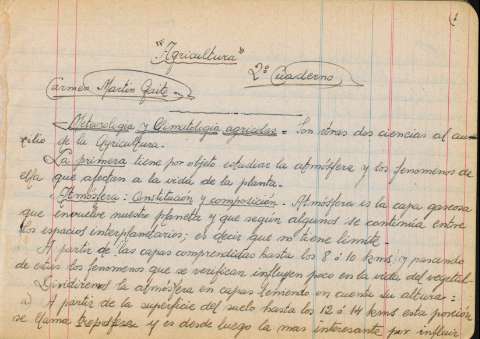 1
"Agricultura"
2º Cuaderno
Carmen Martín Gaite
Meteorologia y Climatologia agricolas = Son estas dos ciencias al au-
xilio de la Agricultura.
La primera tiene por objeto estudiar la atmósfera y los fenomenos de
ella que afectan a la vida de la planta.
Atmósfera: Constitución y composición. Atmósfera es la capa gaseosa
que envuelve nuestro planeta y que según algunos se continúa entre
los espacios interplanetarios; es decir que no tiene limite.
A partir de las capas comprendidas hasta los 8 ó 10 kms. y pasando
de estos los fenomenos que se verifican influyen poco en la vida del vegetal.
Dividiremos la atmósfera en capas teniendo en cuenta su altura:
a) A partir de la superficie del suelo hasta los 12 ó 14 kms esta porción
se llama troposfera y es desde luego la mas interesante por influir